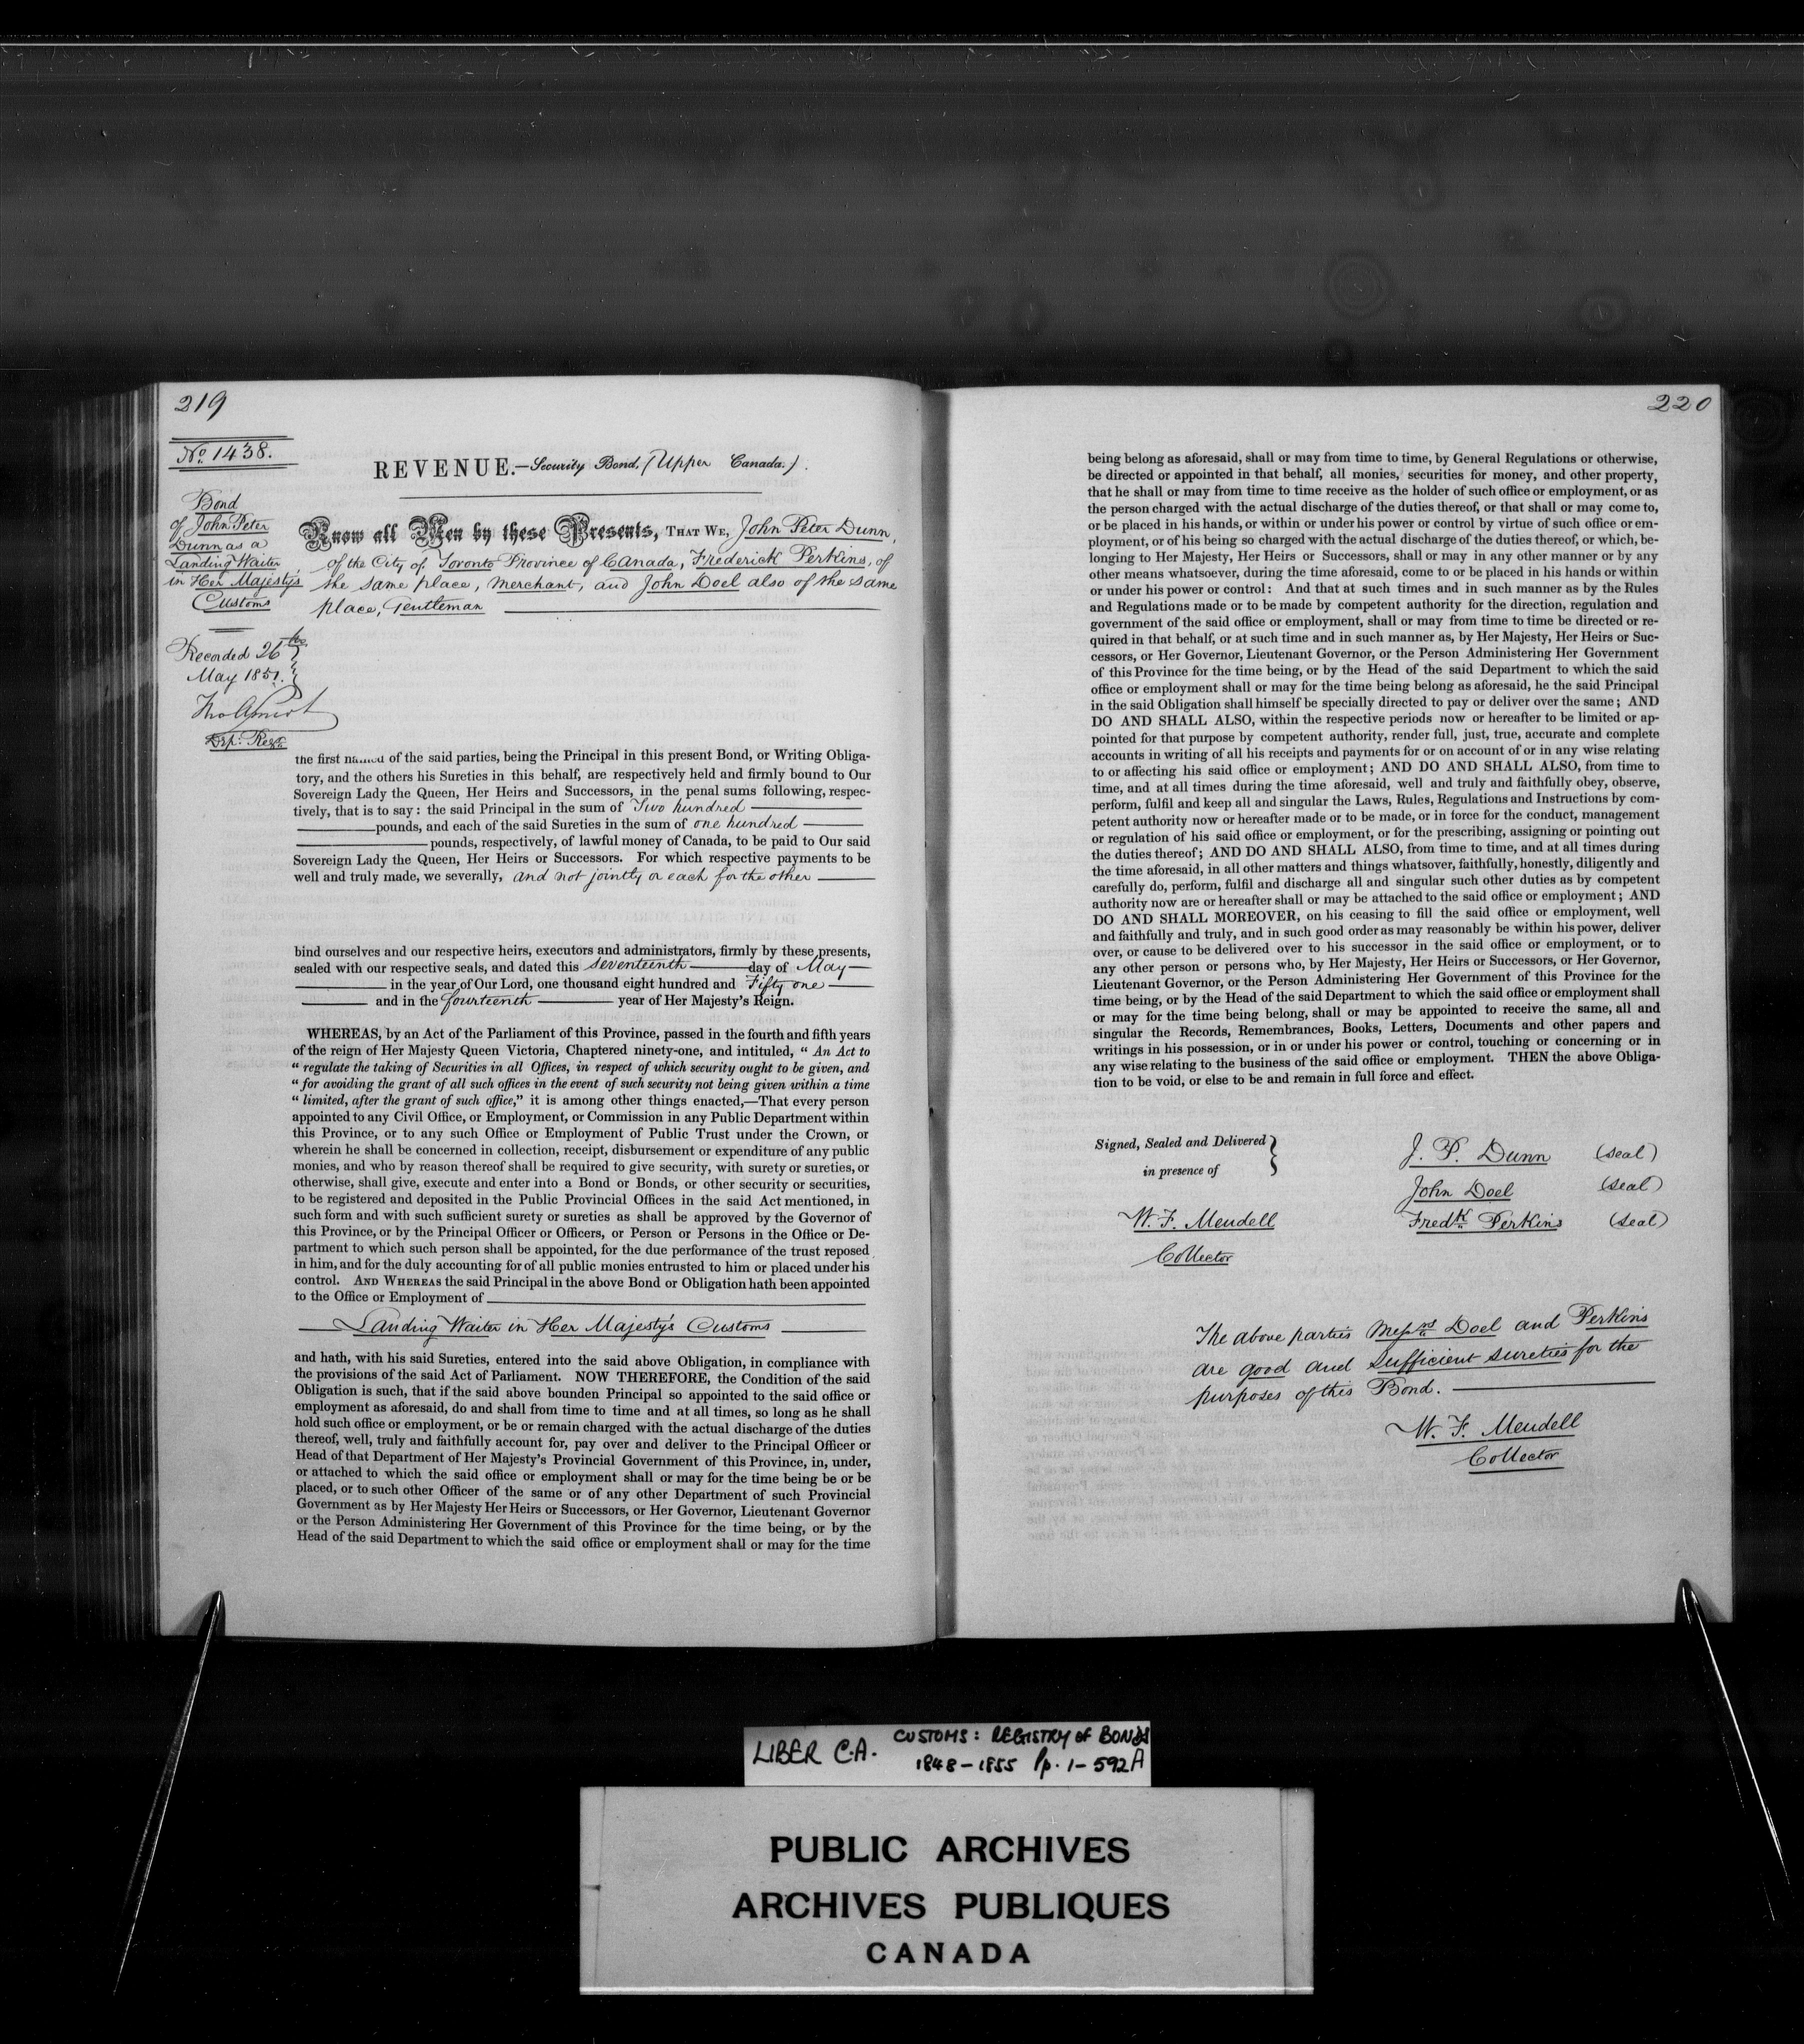 219
No. 1438.
REVENUE.—Security Bond, (Upper Canada.).
Bond
of John Peter
Dunn as a
Landing Waiter
in Her Majesty's
Customs
Recorded 26th
May 1851.
Dep: Regr
Know all Men by these Presents, THAT WE, John Peter Dunn,
of the City of Toronto Province of Canada, Frederick Perkins, of
the same place, Merchant, and John Doel also of the same
place, Gentleman
the first named of the said parties, being the Principal in this present Bond, or Writing Obliga-
tory, and the others his Sureties in this behalf, are respectively held and firmly bound to Our
Sovereign Lady the Queen, Her Heirs and Successors, in the penal sums following, respec-
tively, that is to say: the said Principal in the sum of Two hundred
pounds, and each of the said Sureties in the sum of one hundred
pounds, respectively, of lawful money of Canada, to be paid to Our said
Sovereign Lady the Queen, Her Heirs or Successors. For which respective payments to be
well and truly made, we severally, and not jointly or each for the other
bind ourselves and our respective heirs, executors and administrators, firmly by these presents,
sealed with our respective seals, and dated this seventeenth day of May
in the year of Our Lord, one thousand eight hundred and Fifty one
and in the fourteenth year of Her Majesty's Reign.
WHEREAS, by an Act of the Parliament of this Province, passed in the fourth and fifth years
of the reign of Her Majesty Queen Victoria, Chaptered ninety-one, and intituled, " An Act to
" regulate the taking of Securities in all Offices, in respect of which security ought to be given, and
" for avoiding the grant of all such offices in the event of such security not being given within a time
" limited, after the grant of such office," it is among other things enacted,—That every person
appointed to any Civil Office, or Employment, or Commission in any Public Department within
this Province, or to any such Office or Employment of Public Trust under the Crown, or
wherein he shall be concerned in collection, receipt, disbursement or expenditure of any public
monies, and who by reason thereof shall be required to give security, with surety or sureties, or
otherwise, shall give, execute and enter into a Bond or Bonds, or other security or securities,
to be registered and deposited in the Public Provincial Offices in the said Act mentioned, in
such form and with such sufficient surety or sureties as shall be approved by the Governor of
this Province, or by the Principal Officer or Officers, or Person or Persons in the Office or De-
partment to which such person shall be appointed, for the due performance of the trust reposed
in him, and for the duly accounting for of all public monies entrusted to him or placed under his
control. AND WHEREAS the said Principal in the above Bond or Obligation hath been appointed
to the Office or Employment of
Landing Waiter in Her Majesty's Customs
and hath, with his said Sureties, entered into the said above Obligation, in compliance with
the provisions of the said Act of Parliament. NOW THEREFORE, the Condition of the said
Obligation is such, that if the said above bounden Principal so appointed to the said office or
employment as aforesaid, do and shall from time to time and at all times, so long as he shall
hold such office or employment, or be or remain charged with the actual discharge of the duties
thereof, well, truly and faithfully account for, pay over and deliver to the Principal Officer or
Head of that Department of Her Majesty's Provincial Government of this Province, in, under,
or attached to which the said office or employment shall or may for the time being be or be
placed, or to such other Officer of the same or of any other Department of such Provincial
Government as by Her Majesty Her Heirs or Successors, or Her Governor, Lieutenant Governor
or the Person Administering Her Government of this Province for the time being, or by the
Head of the said Department to which the said office or employment shall or may for the time
220
being belong as aforesaid, shall or may from time to time, by General Regulations or otherwise,
be directed or appointed in that behalf, all monies, securities for money, and other property,
that he shall or may from time to time receive as the holder of such office or employment, or as
the person charged with the actual discharge of the duties thereof, or that shall or may come to,
or be placed in his hands, or within or under his power or control by virtue of such office or em-
ployment, or of his being so charged with the actual discharge of the duties thereof, or which, be-
longing to Her Majesty, Her Heirs or Successors, shall or may in any other manner or by any
other means whatsoever, during the time aforesaid, come to or be placed in his hands or within
or under his power or control: And that at such times and in such manner as by the Rules
and Regulations made or to be made by competent authority for the direction, regulation and
government of the said office or employment, shall or may from time to time be directed or re-
quired in that behalf, or at such time and in such manner as, by Her Majesty, Her Heirs or Suc-
cessors, or Her Governor, Lieutenant Governor, or the Person Administering Her Government
of this Province for the time being, or by the Head of the said Department to which the said
office or employment shall or may for the time being belong as aforesaid, he the said Principal
in the said Obligation shall himself be specially directed to pay or deliver over the same; AND
DO AND SHALL ALSO, within the respective periods now or hereafter to be limited or ap-
pointed for that purpose by competent authority, render full, just, true, accurate and complete
accounts in writing of all his receipts and payments for or on account of or in any wise relating
to or affecting his said office or employment; AND DO AND SHALL ALSO, from time to
time, and at all times during the time aforesaid, well and truly and faithfully obey, observe,
perform, fulfil and keep all and singular the Laws, Rules, Regulations and Instructions by com-
petent authority now or hereafter made or to be made, or in force for the conduct, management
or regulation of his said office or employment, or for the prescribing, assigning or pointing out
the duties thereof; AND DO AND SHALL ALSO, from time to time, and at all times during
the time aforesaid, in all other matters and things whatsover, faithfully, honestly, diligently and
carefully do, perform, fulfil and discharge all and singular such other duties as by competent
authority now are or hereafter shall or may be attached to the said office or employment; AND
DO AND SHALL MOREOVER, on his ceasing to fill the said office or employment, well
and faithfully and truly, and in such good order as may reasonably be within his power, deliver
over, or cause to be delivered over to his successor in the said office or employment, or to
any other person or persons who, by Her Majesty, Her Heirs or Successors, or Her Governor,
Lieutenant Governor, or the Person Administering Her Government of this Province for the
time being, or by the Head of the said Department to which the said office or employment shall
or may for the time being belong, shall or may be appointed to receive the same, all and
singular the Records, Remembrances, Books, Letters, Documents and other papers and
writings in his possession, or in or under his power or control, touching or concerning or in
any wise relating to the business of the said office or employment. THEN the above Obliga-
tion to be void, or else to be and remain in full force and effect.
Signed, Sealed and Delivered
in presence of
W. F. Meudell
Collector
J. P. Dunn (seal)
John Doel (seal)
Fredk Perkins (seal)
The above parties Messrs Doel and Perkins
are good and sufficient sureties for the
purposes of this Bond.
W. F. Meudell
Collector
LIBER C.A. CUSTOMS: REGISTRY OF BONDS
1848-1855 Pp. 1-592A
PUBLIC ARCHIVES
ARCHIVES PUBLIQUES
CANADA